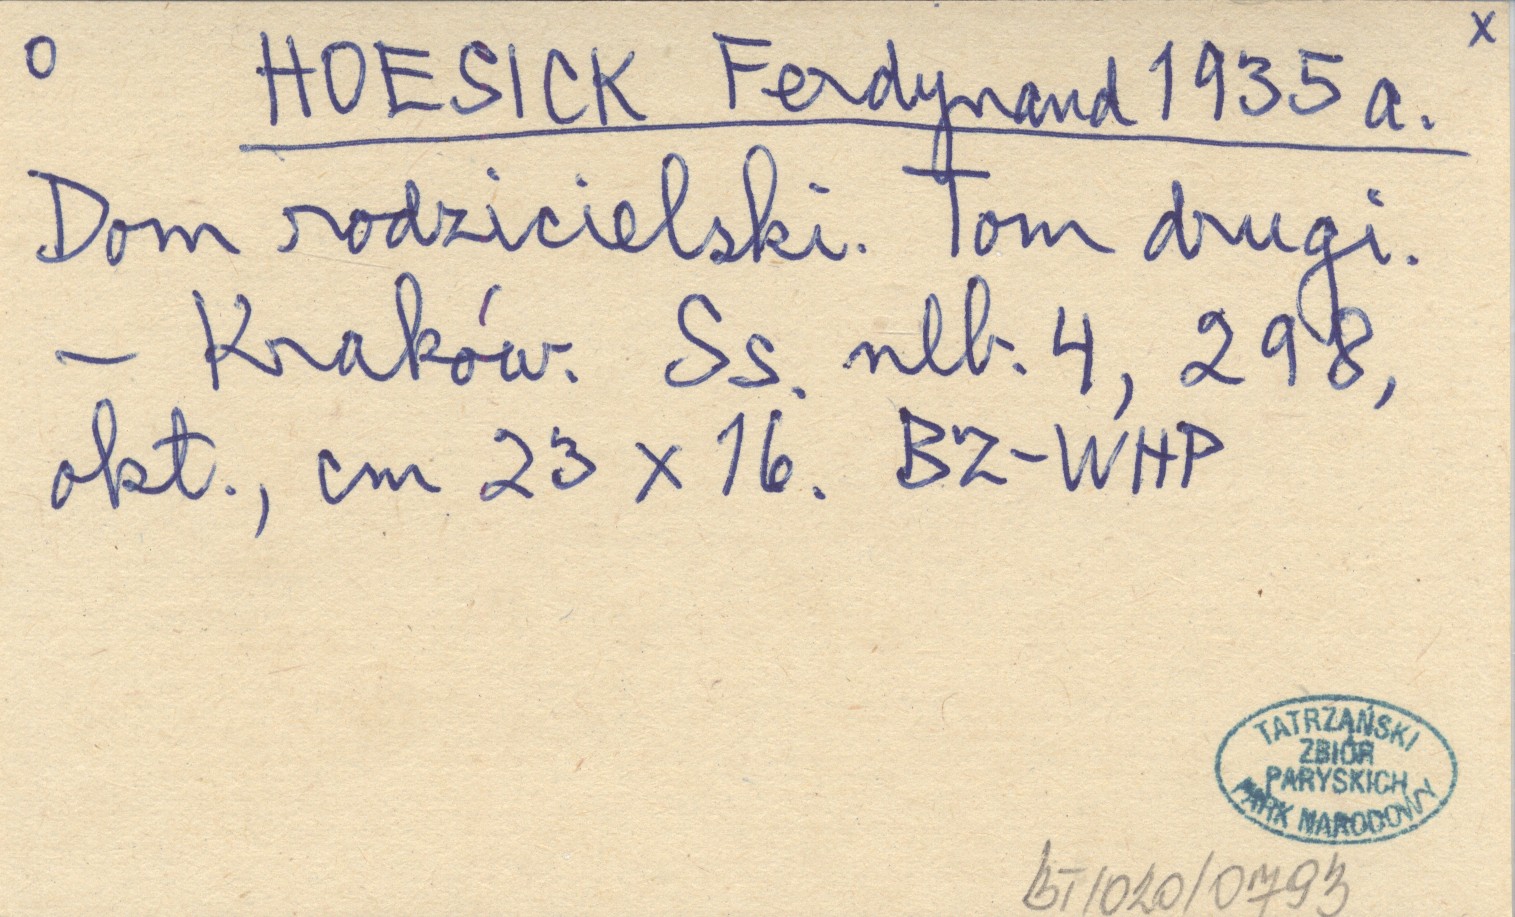 o HOESICK Ferdynand 1935 a. x
Dom rodzicielski. Tom drugi.
– Kraków. Ss. nlb. 4, 298,
okt., cm 23 x 16. BZ-WHP
TATRZAŃSKI
ZBIÓR
PARYSKICH
PARK NARODOWY
BT/020/0793